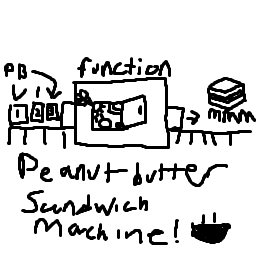 function
PB
1 2 3
mmm
Peanut butter
Sandwich
Machine!